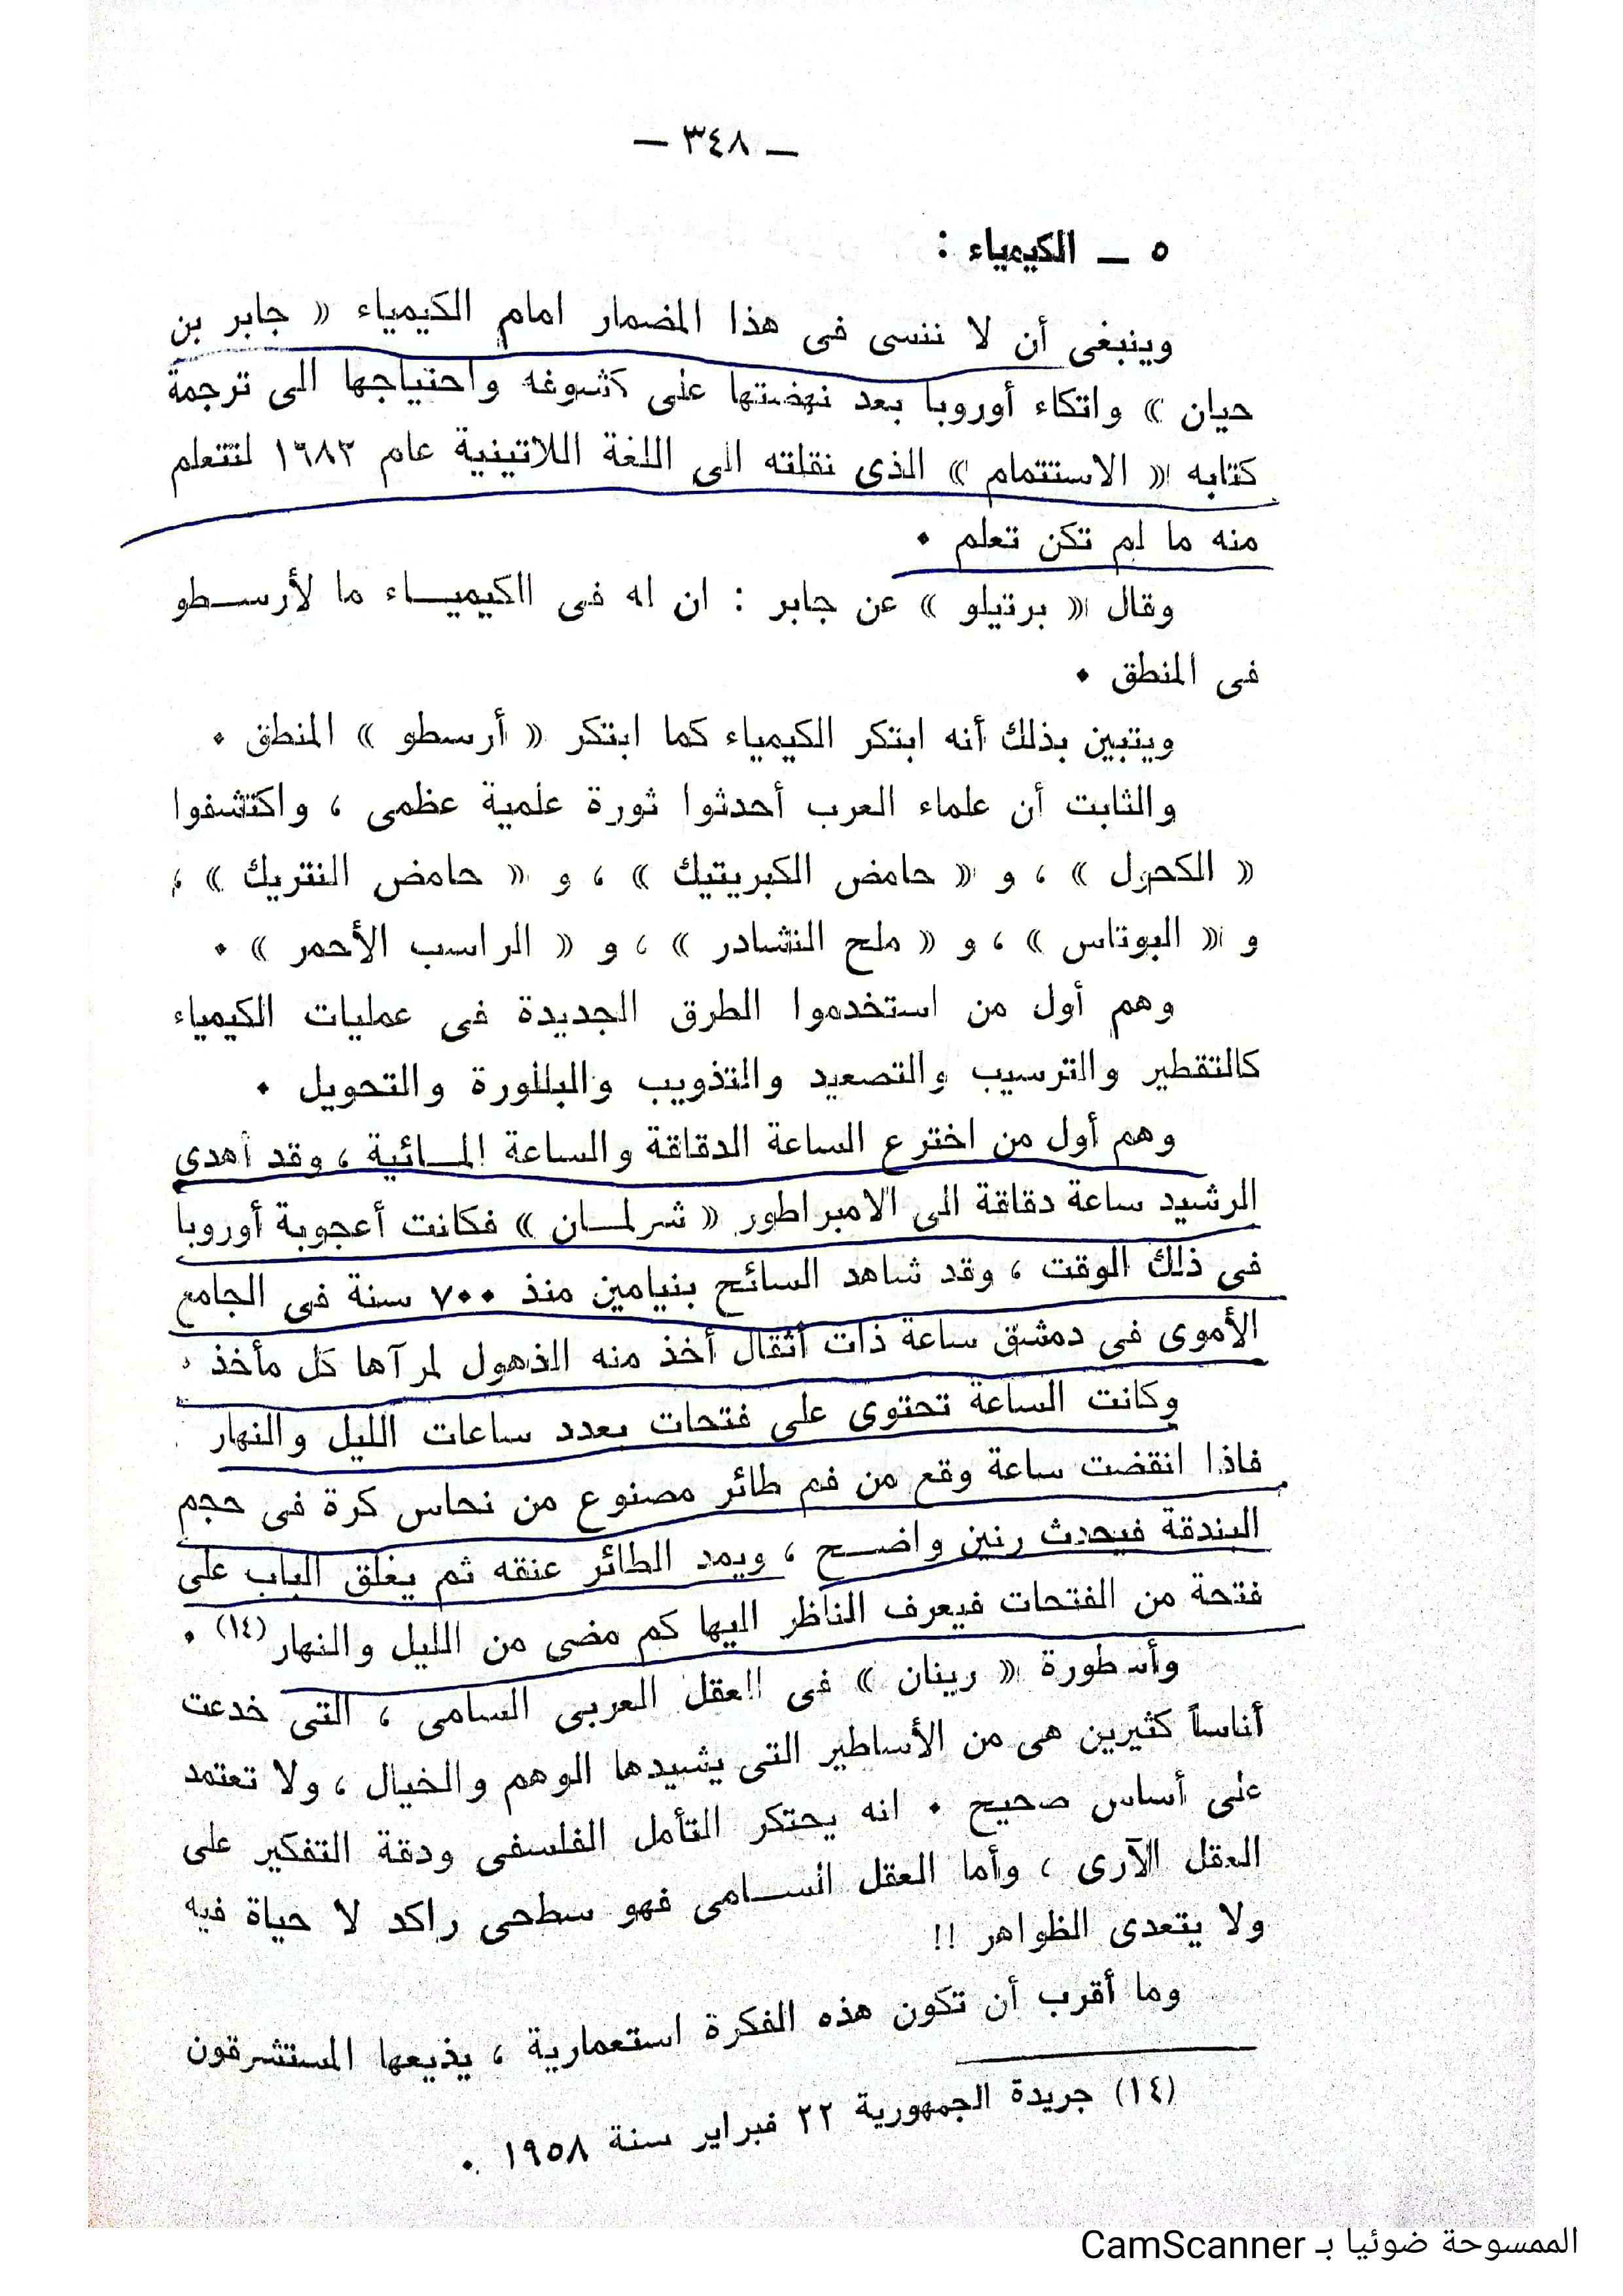 — ٣٤٨ —
٥ — الكيمياء :
وينبغى أن لا ننسى فى هذا المضمار امام الكيمياء « جابر بن
حيان » واتكاء أوروبا بعد نهضتها على كشوفه واحتياجها الى ترجمة
كتابه « الاستتمام » الذى نقلته الى اللغة اللاتينية عام ١٦٨٣ لتتعلم
منه ما لم تكن تعلم ٠
وقال « برتيلو » عن جابر : ان له فى الكيميـــاء ما لأرســطو
فى المنطق ٠
ويتبين بذلك أنه ابتكر الكيمياء كما ابتكر « أرسطو » المنطق ٠
والثابت أن علماء العرب أحدثوا ثورة علمية عظمى ، واكتشفوا
« الكحول » ، و « حامض الكبريتيك » ، و « حامض النتريك » ،
و « البوتاس » ، و « ملح النشادر » ، و « الراسب الأحمر » ٠
وهم أول من استخدموا الطرق الجديدة فى عمليات الكيمياء
كالتقطير والترسيب والتصعيد والتذويب والبللورة والتحويل ٠
وهم أول من اخترع الساعة الدقاقة والساعة المــائية ، وقد أهدى
الرشيد ساعة دقاقة الى الامبراطور « شرلمــان » فكانت أعجوبة أوروبا
فى ذلك الوقت ، وقد شاهد السائح بنيامين منذ ٧٠٠ سنة فى الجامع
الأموى فى دمشق ساعة ذات أثقال أخذ منه الذهول لمرآها كل مأخذ ٠
وكانت الساعة تحتوى على فتحات بعدد ساعات الليل والنهار
فاذا انقضت ساعة وقع من فم طائر مصنوع من نحاس كرة فى حجم
البندقة فيحدث رنين واضــح ، ويمد الطائر عنقه ثم يغلق الباب على
فتحة من الفتحات فيعرف الناظر اليها كم مضى من الليل والنهار(١٤) ٠
وأسطورة « رينان » فى العقل العربى السامى ، التى خدعت
أناساً كثيرين هى من الأساطير التى يشيدها الوهم والخيال ، ولا تعتمد
على أساس صحيح ٠ انه يحتكر التأمل الفلسفى ودقة التفكير على
العقل الآرى ، وأما العقل الســامى فهو سطحى راكد لا حياة فيه
ولا يتعدى الظواهر !!
وما أقرب أن تكون هذه الفكرة استعمارية ، يذيعها المستشرقون
(١٤) جريدة الجمهورية ٢٢ فبراير سنة ١٩٥٨ ٠
الممسوحة ضوئيا بـ CamScanner